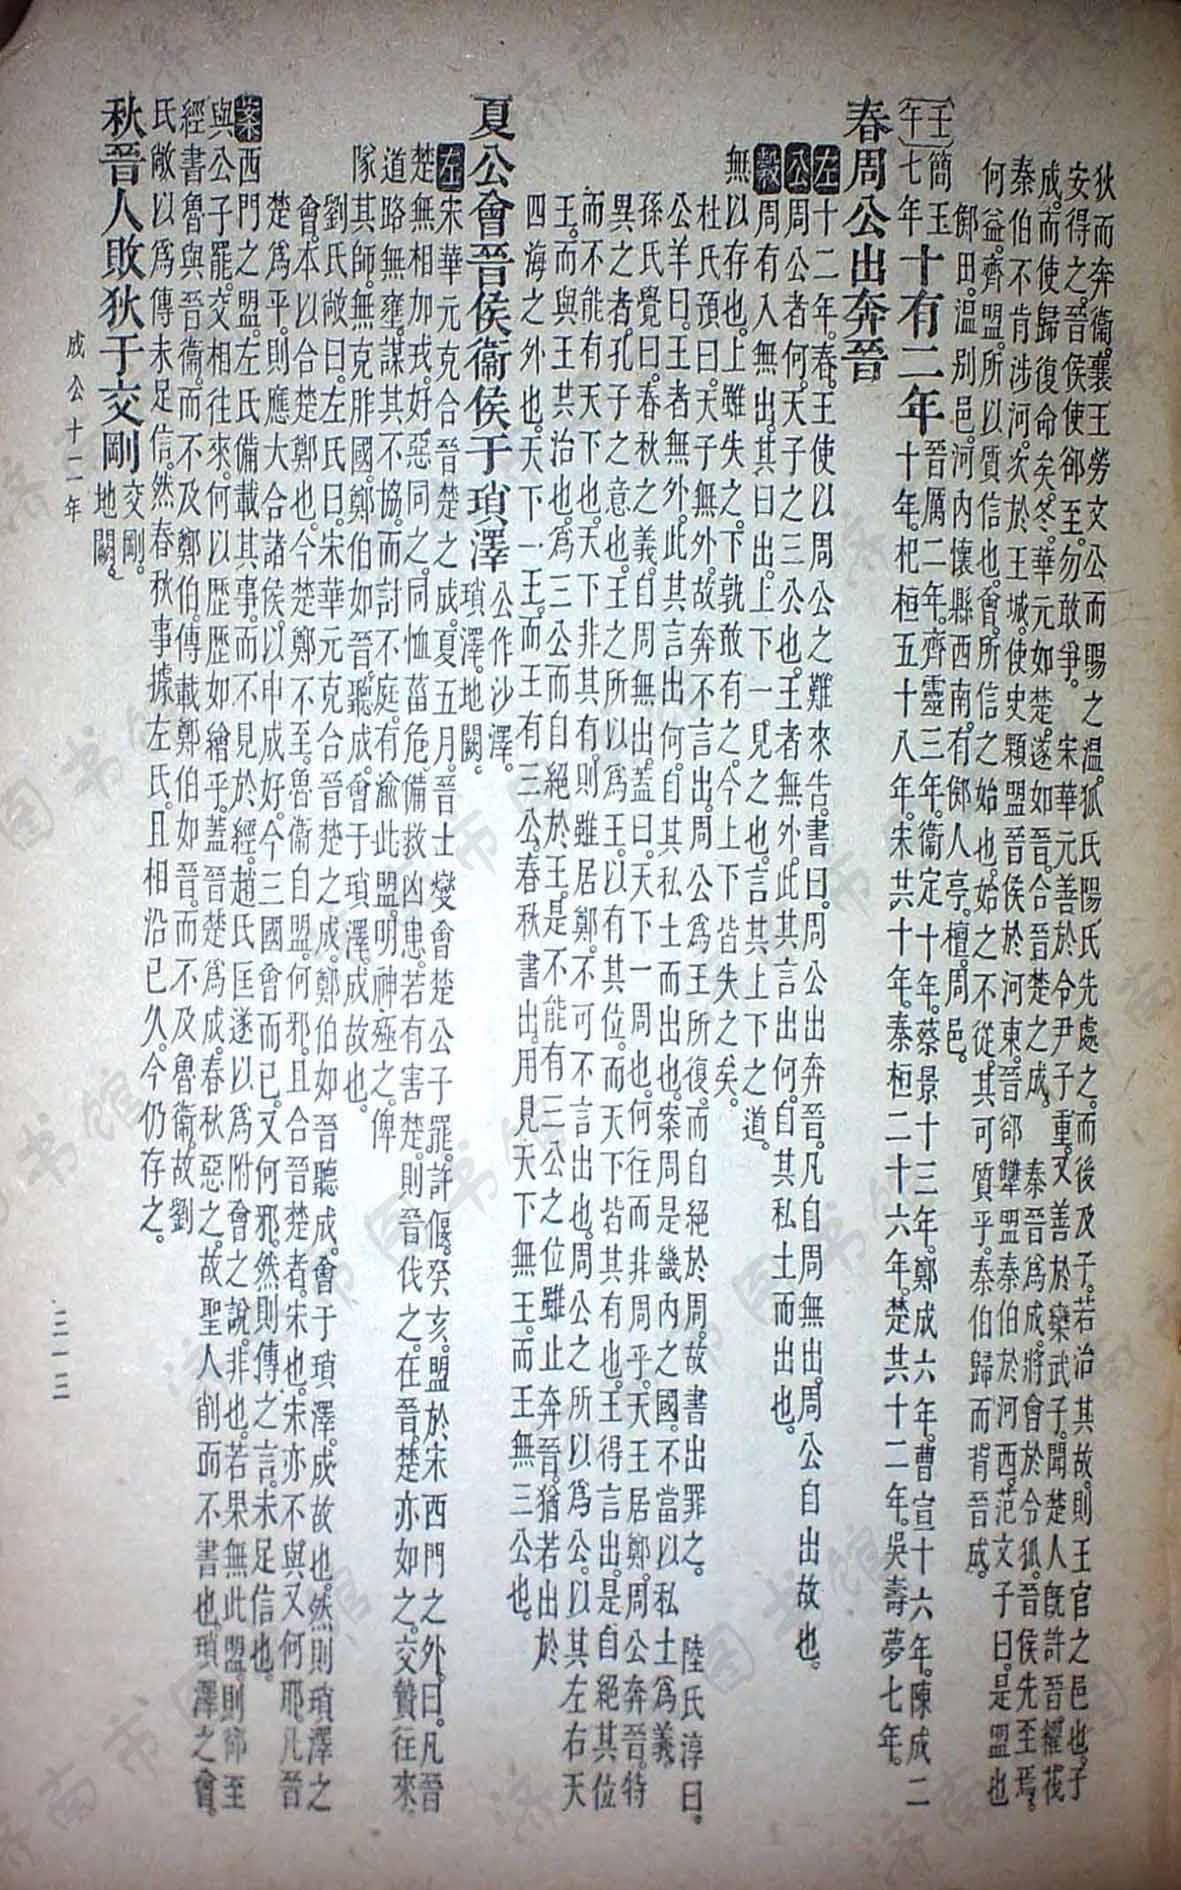 狄而奔衞襄王勞文公而賜之溫狐氏陽氏先處之而後及子若治其故則王官之邑也子
安得之晉侯使郤至勿敢爭 宋華元善於令尹子重又善於欒武子聞楚人既許晉糴茷
成而使歸復命矣冬華元如楚遂如晉合晉楚之成 秦晉爲成將會於令狐晉侯先至焉
秦伯不肯涉河次於王城使史顆盟晉侯於河東晉郤犨盟秦伯於河西范文子曰是盟也
何益齊盟所以質信也會所信之始也始之不從其可質乎秦伯歸而背晉成
鄇田溫别邑河內懷縣西南有鄇人亭檀周邑
〔壬午〕簡王七年十有二年晉厲二年齊靈三年衞定十年蔡景十三年鄭成六年曹宣十六年陳成二
十年杞桓五十八年宋共十年秦桓二十六年楚共十二年吳壽夢七年
春周公出奔晉
左十二年春王使以周公之難來吿書曰周公出奔晉凡自周無出周公自出故也
公周公者何天子之三公也王者無外此其言出何自其私土而出也
穀周有入無出其曰出上下一見之也言其上下之道
無以存也上雖失之下孰敢有之今上下皆失之矣
杜氏預曰天子無外故奔不言出周公爲王所復而自絕於周故書出罪之 陸氏淳曰
公羊曰王者無外此其言出何自其私土而出也案周是畿內之國不當以私土爲義
孫氏覺曰春秋之義自周無出蓋曰天下一周也何往而非周乎天王居鄭周公奔晉特
異之者孔子之意也王之所以爲王以有其位而天下皆其有也王得言出是自絕其位
而不能有天下也天下非其有則雖居鄭不可不言出也周公之所以爲公以其左右天
王而與王共治也爲三公而自絕於王是不能有三公之位雖止奔晉猶若出於
四海之外也天下一王而王有三公春秋書出用見天下無王而王無三公也
夏公會晉侯衞侯于瑣澤公作沙澤
瑣澤地闕
左宋華元克合晉楚之成夏五月晉士燮會楚公子罷許偃癸亥盟於宋西門之外曰凡晉
楚無相加戎好惡同之同恤菑危備救凶患若有害楚則晉伐之在晉楚亦如之交贄往來
道路無壅謀其不協而討不庭有渝此盟明神殛之俾
隊其師無克胙國鄭伯如晉聽成會于瑣澤成故也
劉氏敞曰左氏曰宋華元克合晉楚之成鄭伯如晉聽成會于瑣澤成故也然則瑣澤之
會本以合楚鄭也今楚鄭不至魯衞自盟何邪且合晉楚者宋也宋亦不與又何耶凡晉
楚爲平則應大合諸侯以申成好今三國會而已又何邪然則傳之言未足信也
案西門之盟左氏備載其事而不見於經趙氏匡遂以爲附會之說非也若果無此盟則郤至
與公子罷交相往來何以歷歷如繪乎蓋晉楚爲成春秋惡之故聖人削而不書也瑣澤之會
經書魯與晉衞而不及鄭伯傳載鄭伯如晉而不及魯衞故劉
氏敞以爲傳未足信然春秋事據左氏且相沿已久今仍存之
秋晉人敗狄于交剛交剛
地闕
成公十二年
三一三